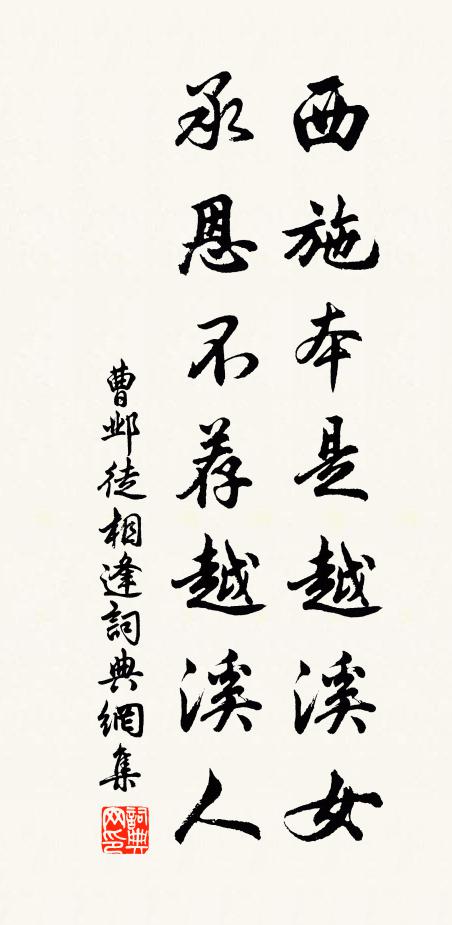 西施本是越溪女
承恩不荐越溪人
曹邺徒相逢詞典網集
詞典网印